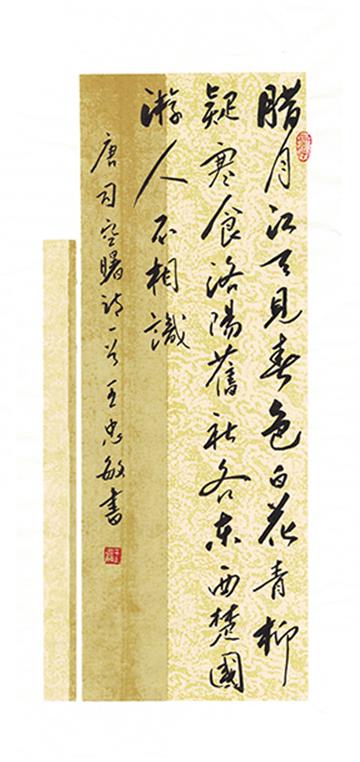 腊月江天见春色白花青柳
疑寒食洛陽舊社各东西楚國
游人不相識
唐司空曙诗一首王忠敏書